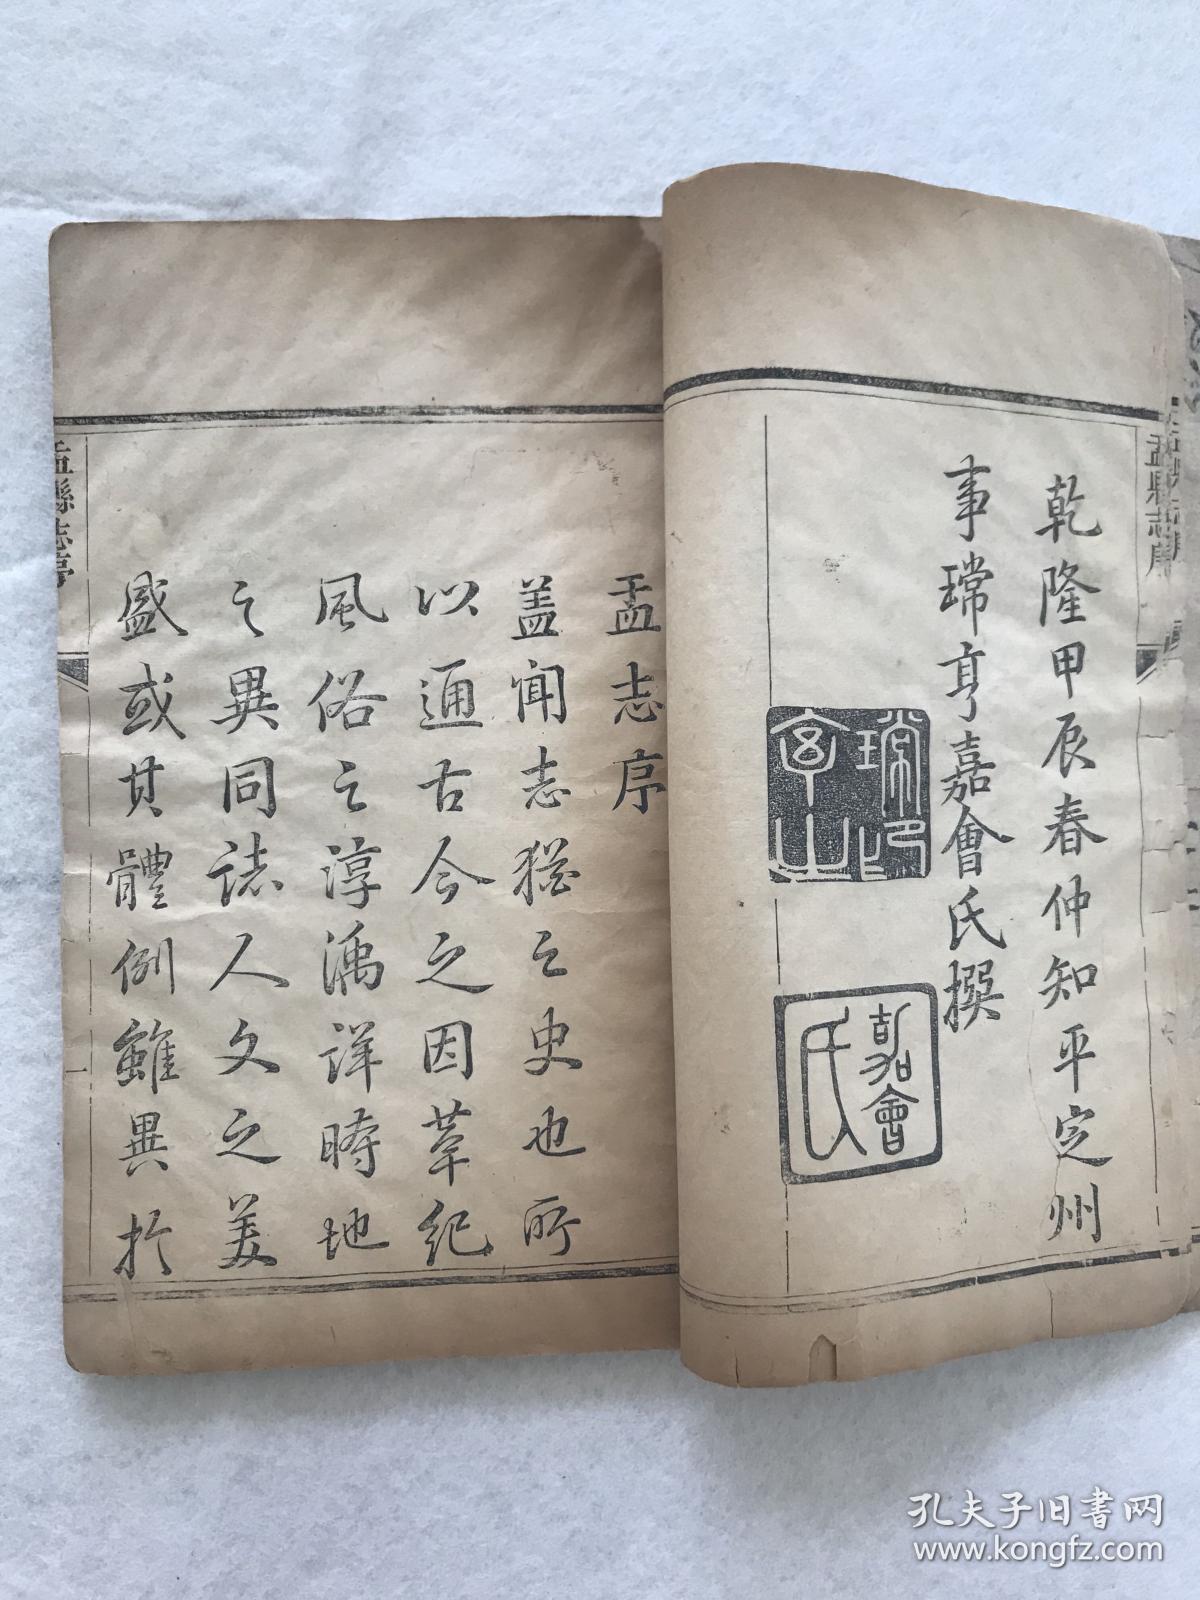 乾隆甲辰春仲知平定州
事瑺亨嘉會氏撰
嘉會
氏
盂縣志序
盂志序
盖闻志猶之史也所
以通古今之因革紀
風俗之淳漓詳時地
之異同誌人文之美
盛或其體例雖異於
盂縣志序
一
孔夫子旧书网
www.kongfz.com